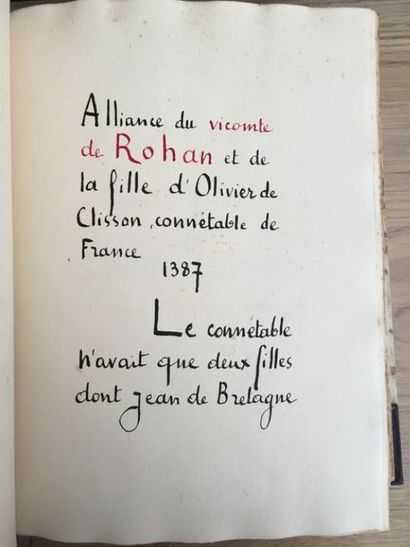 Alliance du vicomte
de Rohan et de
la fille d'Olivier de
Clisson, connétable de
France
1387
Le connétable
n'avait que deux filles
dont Jean de Bretagne